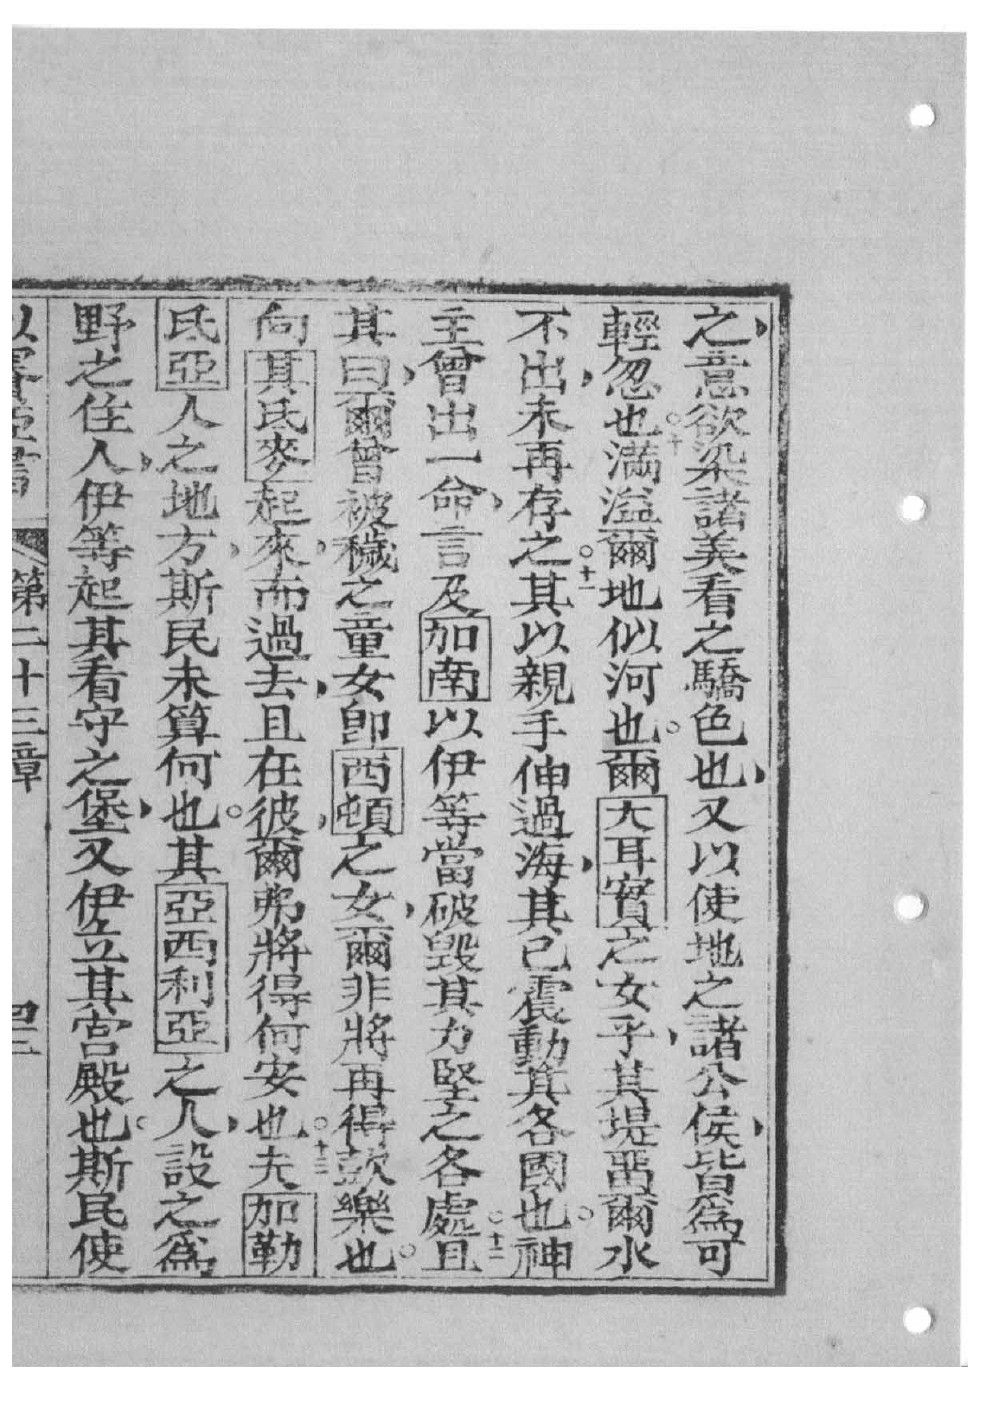 之意欲染諸美看之驕色也又以使地之諸公侯皆為可
輕忽也。十滿溢爾地似河也。爾大耳實之女乎其堤壘爾水
不出未再存之。十一其以親手伸過海其已震動其各國也。神
主曾出一命言及加南以伊等當破毀其力堅之各處。十二且
其曰爾曾被穢之童女卽西頓之女爾非將再得歡樂也。
向其氏麥起來而過去且在彼爾弗將得何安也。十三夫加勒
氐亞人之地方斯民未算何也。其亞西利亞之人設之爲
野之住人伊等起其看守之堡又伊立其宮殿也。斯民使
第二十三章